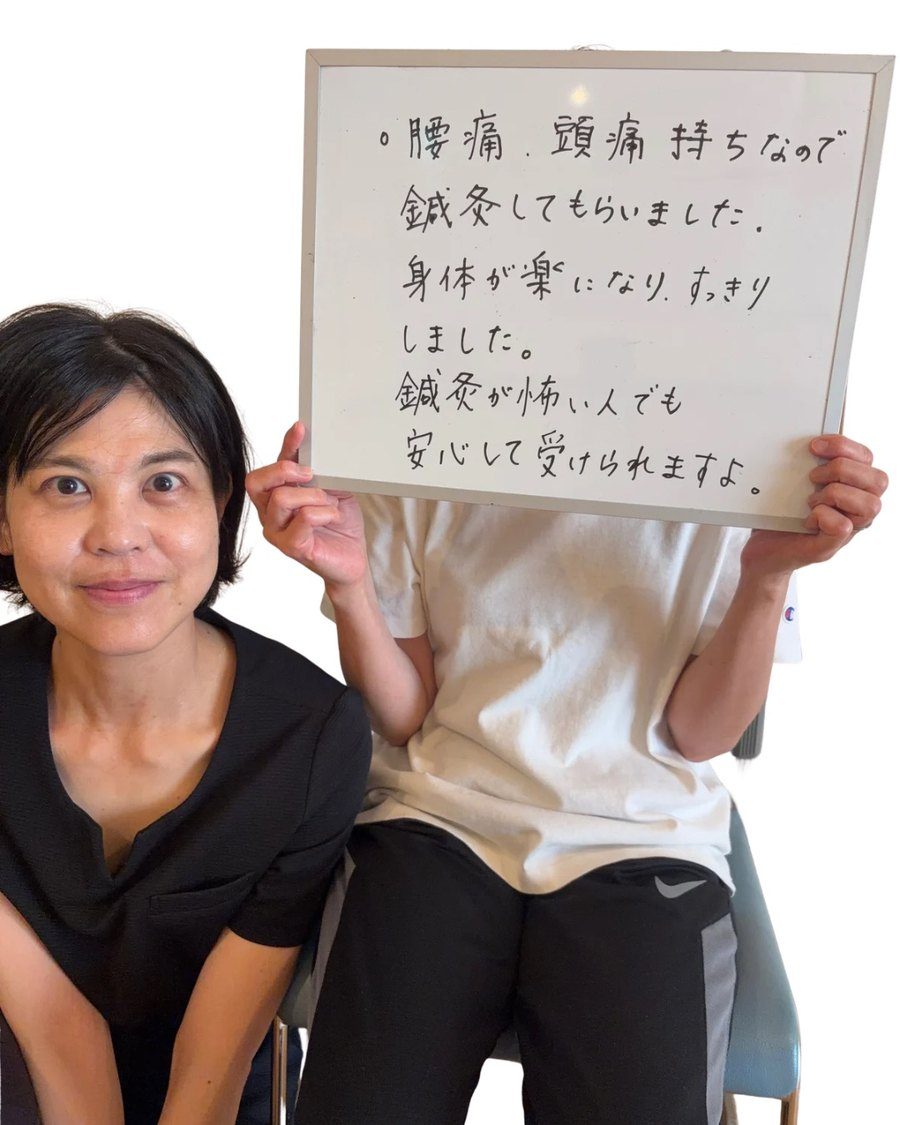 。腰痛、頭痛持ちなので
鍼灸してもらいました。
身体が楽になり、すっきり
しました。
鍼灸が怖い人でも
安心して受けられますよ。